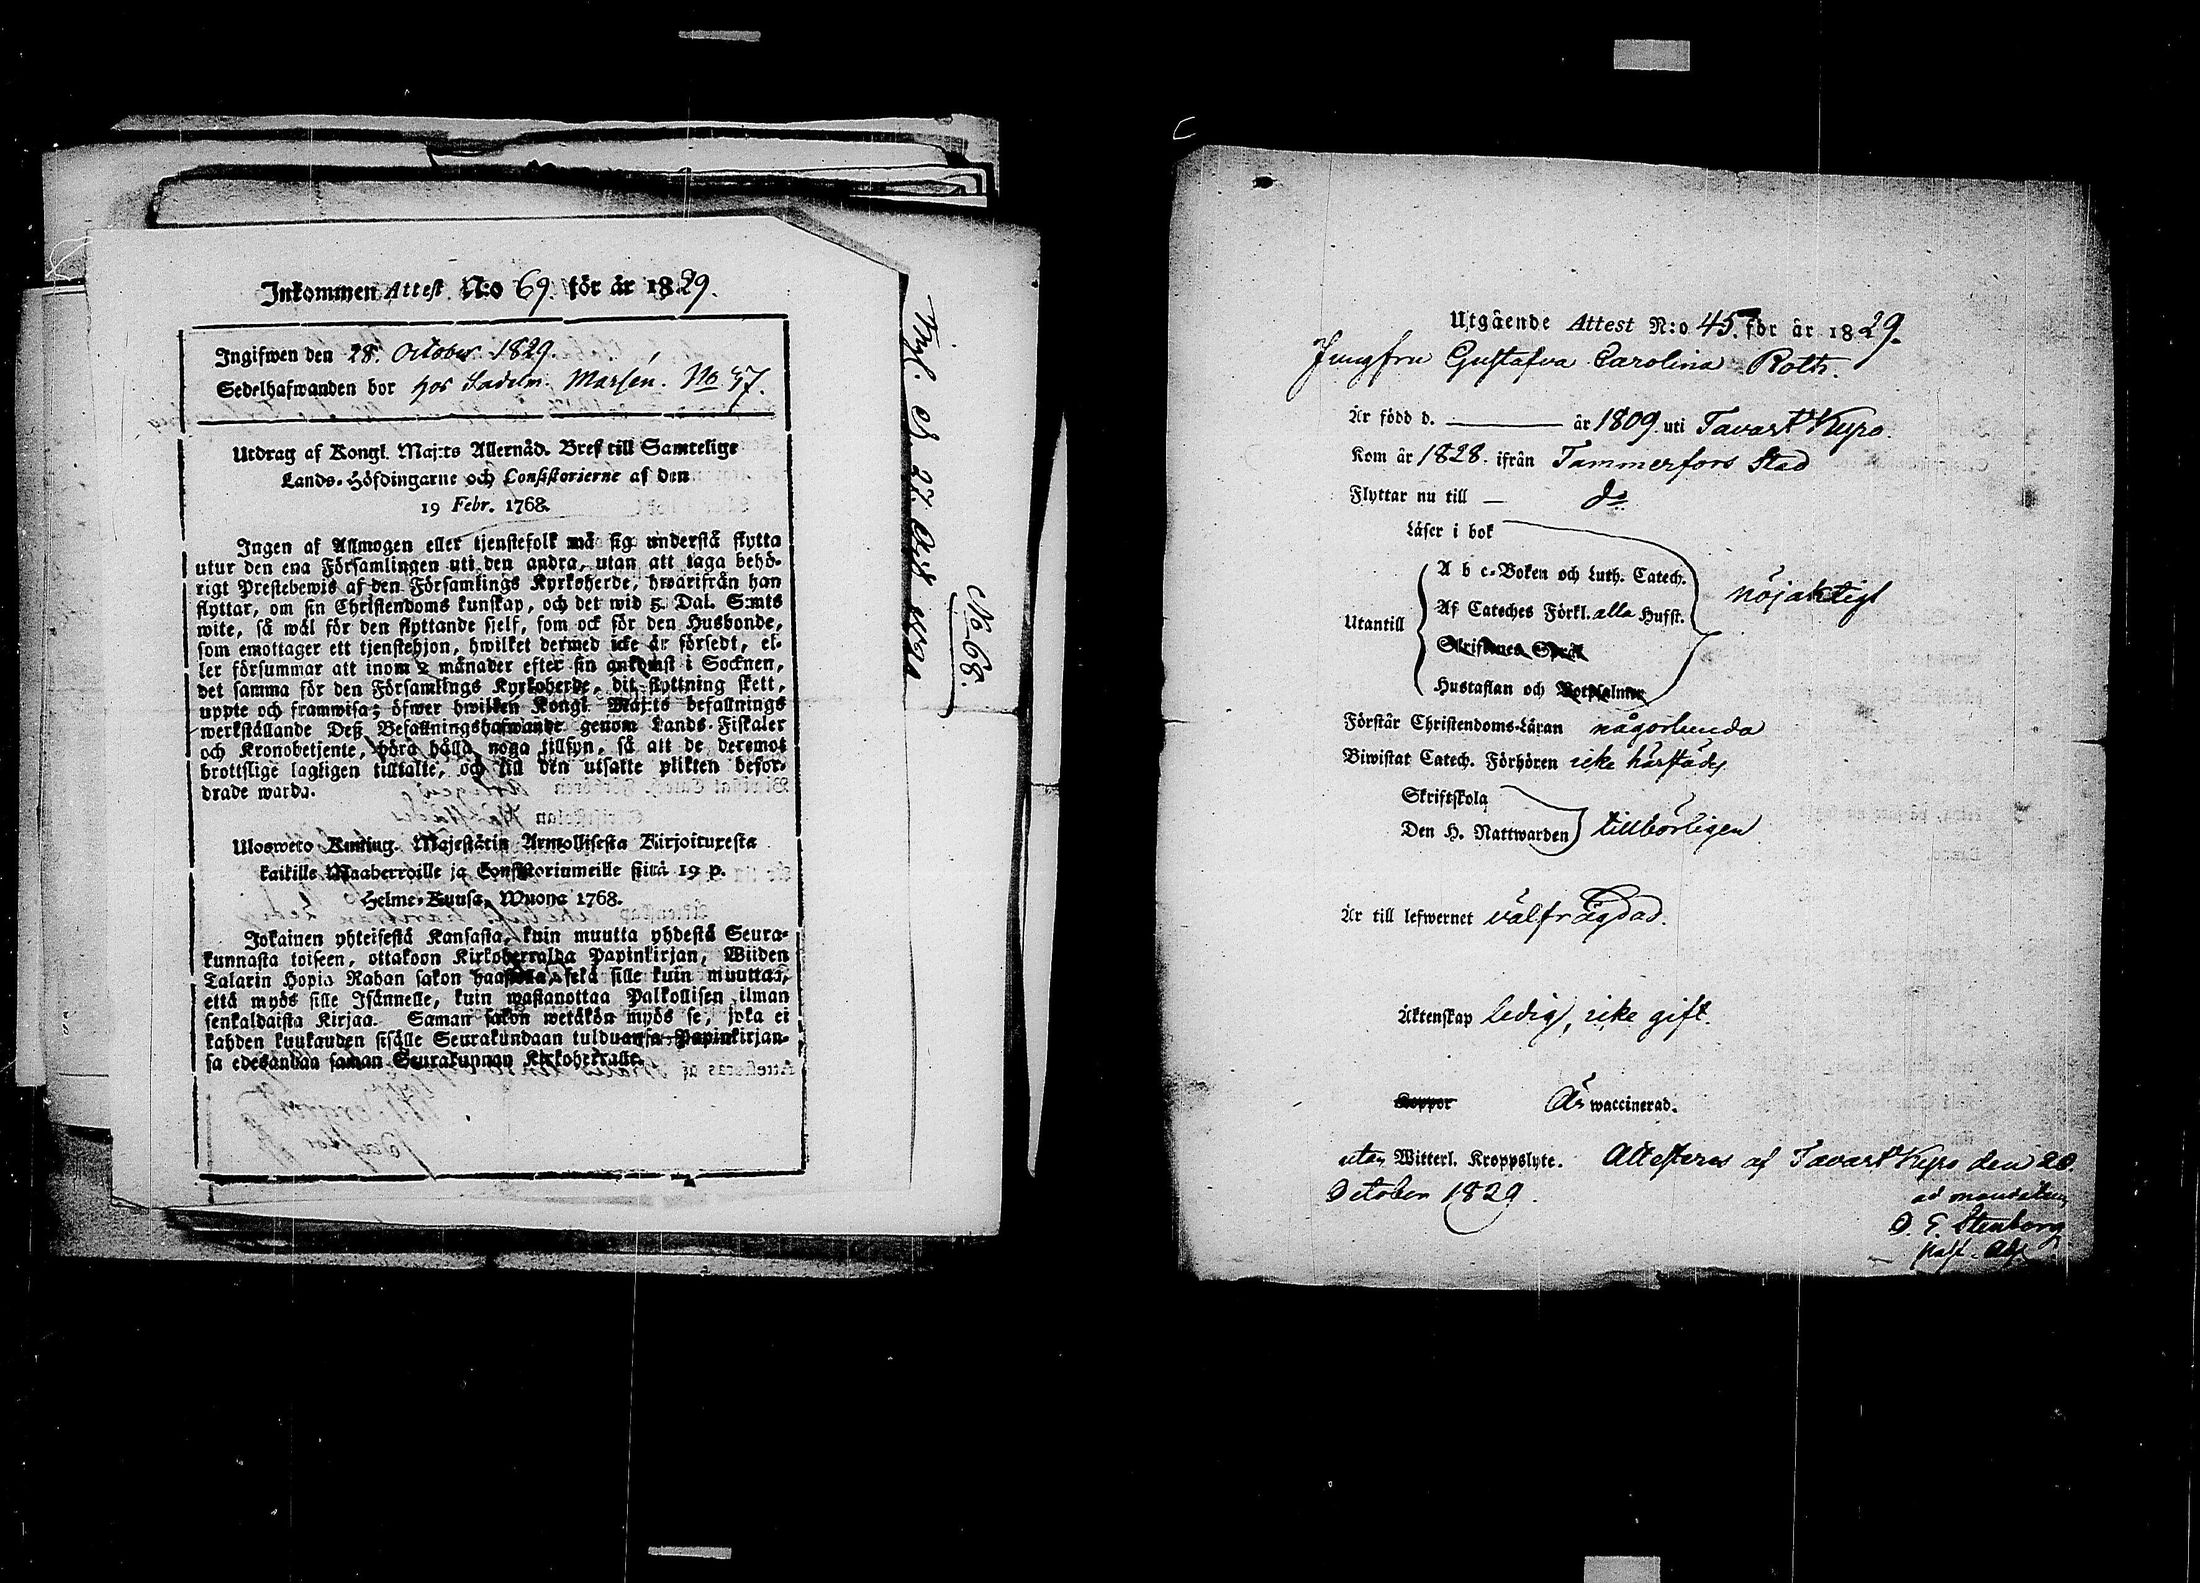 Inkommen Attest N:o 69. för år 1829.
Ingifwen den 28. October 1829.
Sedelhafwanden bor hos Sadelm. Marsén. No 57.
Utdrag af Kongl. Maj:ts Allernåd. Bref till Samtelige
Lands-Höfdingarne och Consistorierne af den
19 Febr. 1768.
Ingen af Allmogen eller tjenstefolk må sig understå flytta
utur den ena Församlingen uti den andra, utan att taga behö-
rigt Prestebewis af den Församlings Kyrkoherde, hwarifrån han
flyttar, om sin Christendoms kunskap, och det wid 5 Dal. S:mts
wite, så wäl för den flyttande sjelf, som ock för den Husbonde,
som emottager ett tjenstehjon, hwilket dermed icke är försedt, el-
ler försummar att inom 2 månader efter sin ankomst i Socknen,
det samma för den Församlings Kyrkoherde, dit flyttning skett,
uppte och framwisa; öfwer hwilken Kongl. Maj:ts befallnings
werkställande Deß Befallningshafwande genom Lands-Fiskaler
och Kronobetjente, böra hålla noga tillsyn, så att de deremot
brottslige lagligen tilltalte, och till den utsatte plikten befor-
drade warda.
Ulosweto Kuning. Majestätin Armollisesta Kirjoituxesta
kaikille Maaherroille ja Consistoriumeille siitä 19 p.
Helme-Kuusa, Wuona 1768.
Jokainen yhteisestä Kansasta, kuin muutta yhdestä Seura-
kunnasta toiseen, ottakoon Kirkoherralda Papinkirjan, Wiiden
Talarin Hopia Rahan sakon haastolla, sekä sille kuin muuttaa,
että myös sille Isännelle, kuin wastanottaa Palkollisen ilman
senkaldaista Kirjaa. Saman sakon wetäkön myös se, joka ei
kahden kuukauden sisälle Seurakundaan tulduansa Papinkirjan-
sa edesanna saman Seurakunnan Kirkoherralle.
No 68.
Utgående Attest N:o 45. för år 1829.
Jungfru Gustafva Carolina Roth.
Är född d. ——— år 1809. uti Tavast Kyro.
Kom år 1828. ifrån Tammerfors Stad
Flyttar nu till — do
Läser i bok
A b c-Boken och Luth. Catech.
nöjaktigt
Af Cateches Förkl. alla Hufst.
Utantill
Skriftenes Språk
Hustaflan och Botpsalmer
Förstår Christendoms-Läran någorlunda
Biwistat Catech. Förhören icke härstädes
Skriftskola
Den H. Nattwarden tillbörligen
Är till lefwernet välfrägdad.
Äktenskap ledig, icke gift.
Koppor Är waccinerad.
utan Witterl. Kroppslyte. Attesteras af Tavast Kyro den 28
October 1829.
ad mandatum
Stenborg